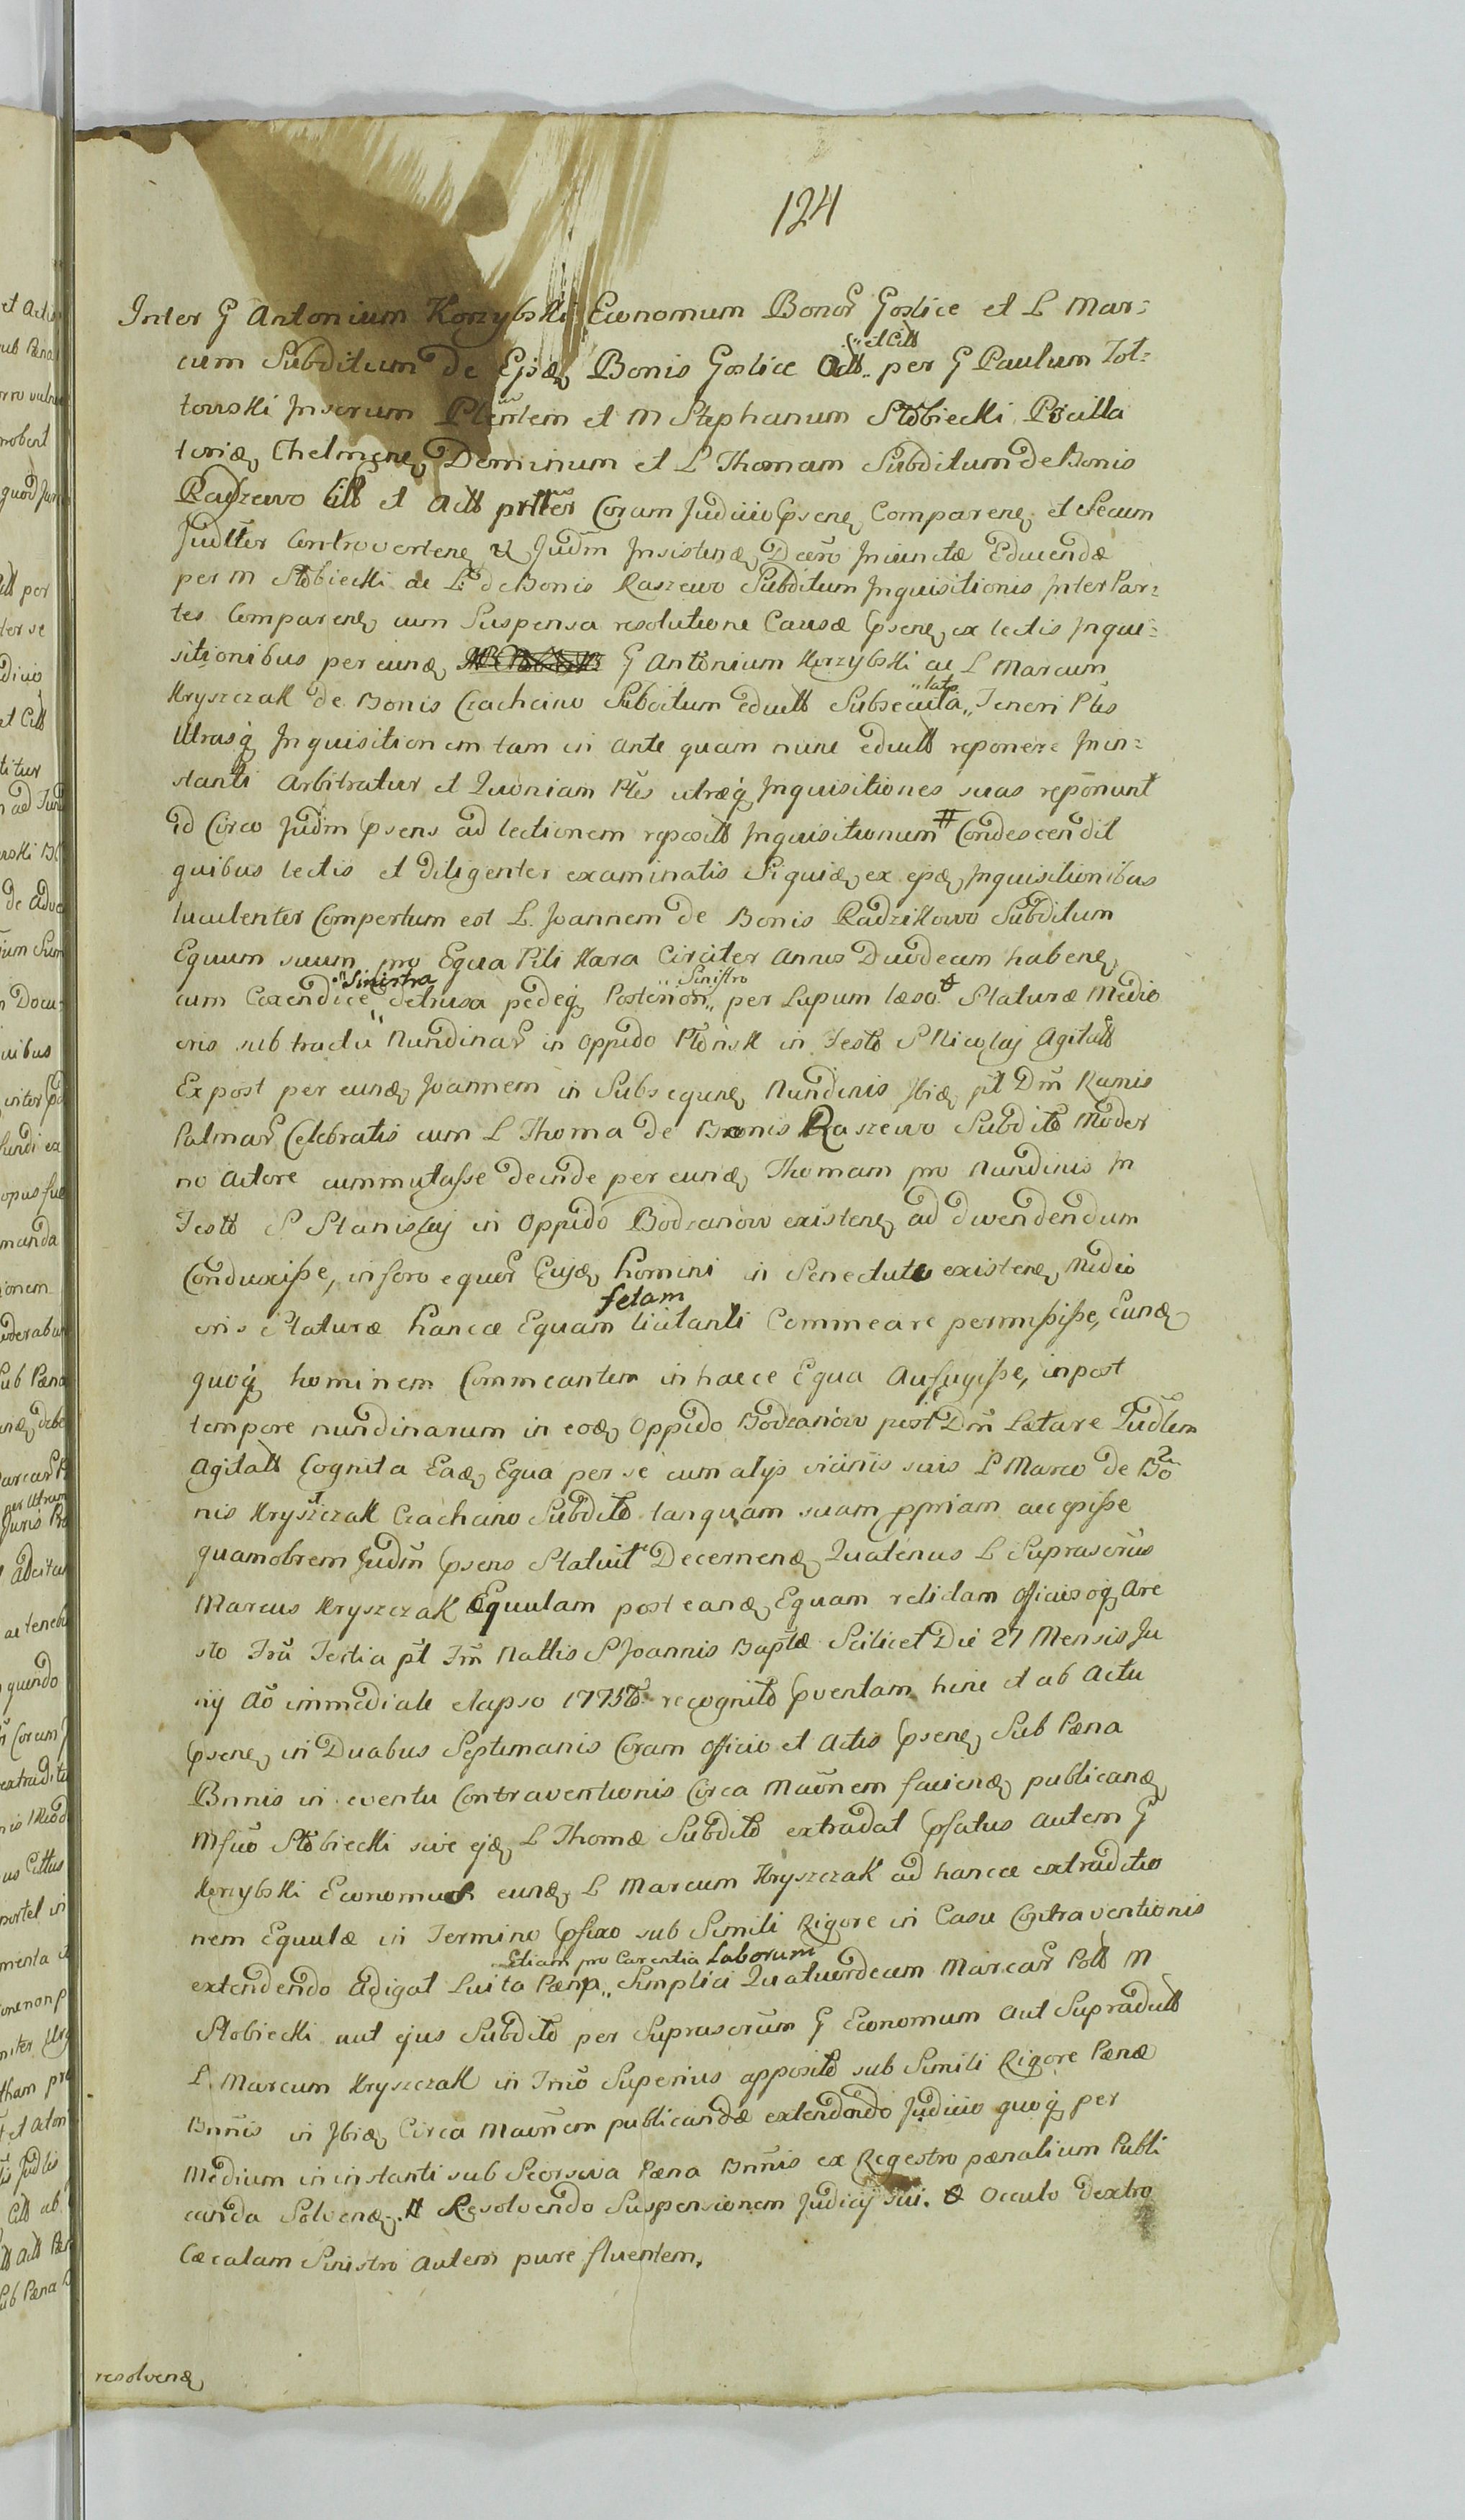 124
Inter G Antonium Korzybski Economum Bonor Goslice et L Mar:
cum Subditum de Ejsd Bonis Goslice Actt et Citt per G Paulum Tot:
towski Insorum Plentem et M Stephanum Stobiecki Pocilla
toriæ Thelmene Dominum et L Thomam Subditum de Bonis
Raszewo Citt et Actt prtter Coram Judicio psene Comparene et Secum
Judtter Controvertene Judm Insistend Decro Iniunctæ Educendæ
per M Stobiecki ac L de Bonis Raszewo Subditum Inquisitionis Inter Par:
tes Comparene cum Suspensa resolutione Causæ psene ex lectis Inqui:
sitionibus per eund G Antonium Korzybski ac L Marcum
Kryszczak de Bonis Crachcino Subditum edutt Subsecuta lato Teneri Ptes
Utrasq Inquisitionem tam in ante quam nunc edutt reponere In in:
stanti Arbitratur et Quoniam Ptes utræq Inquisitiones suas reponunt
id Circo Judm psens ad lectionem repositt Inquisitionum # Condescendit
quibus lectis et diligenter examinatis Siquid ex ejsd Inquisitionibus
luculenter Compertum est L. Joannem de Bonis Radzikowo Subditum
Equum suum pro Equa Pili Kara Circiter Annos Duodecim habene
cum Coxendice Sinistra detrusa pedeq Posterior Sinistro per Lupum læso Staturæ Medio
cris sub tractu Nundinar in Oppido Plonsk in Festo S Nicolaj Agitatt
Ex post per eund Joannem in Subsequene Nundinis Ibid pt Dm Ramis
Palmar Celebratis cum L Thoma de Bonis Raszewo Subdito Moder
no Actore cummutasse deinde per eund Thomam pro Nundinis In
Festo S Stanislaj in Oppido Bodzanow existene ad divendendum
Conduxisse, in foro equor Cujsd homini in Senectute existene Medio
cris Staturæ hancce Equam fetam licitanti Commeare permisisse, Eund
quoq hominem Commeantem in haece Equa Aufugisse, in post
tempore nundinarum in eod Oppido Bodzanow post Dm Lætare Qudlem
Agitatt Cognita Ead Equa per se cum alijs vicinis suis L Marco de Bo
nis Kryszczak Crachcino Subdito tanquam suam ppriam accepisse
quamobrem Judm psens Statuit Decernend Quatenus L Suprascrius
Marcus Kryszczak Equulam post eand Equam relictam Officiosoq Are
sto Fra Tertia pt Fm Nattis S Joannis Baptæ Scilicet Die 27 Mensis Ju
nij Ao immediate elapso 1775to recognito pventam hinc et ab Actu
psene in Duabus Septimanis Coram Officio et Actis psene Sub Pæna
Bnnis in eventu Contraventionis Circa Maonem faciend publicand
Mfico Stobiecki sive ejsd L Thomæ Subdito extradat psatus autem G
Korzybski Economus eund L Marcum Kryszczak ad hancce extraditio
nem Equulæ in Termino pfixo sub Simili Rigore in Casu Contraventionis
extendendo Adigat Luita Pæna Etiam pro Carentia Laborum Simplici Quatuordecim Marcar Pott M
Stobiecki aut ejus Subdito per Suprascrum G Economum aut Supradutt
L. Marcum Kryszczak in Tmo Superius apposito sub Simili Rigore Pænæ
Bnnis in Ibid Circa Maonem publicandæ extendendo Judicio quoq per
Medium in instanti sub Seorsiva Pæna Bnnis ex Regestro pænalium Publi
canda Solvend. # Resolvendo Suspensionem Judicij sui. Occulo dextro
Cæcatam Sinistro autem pure fluentem.
resolvend